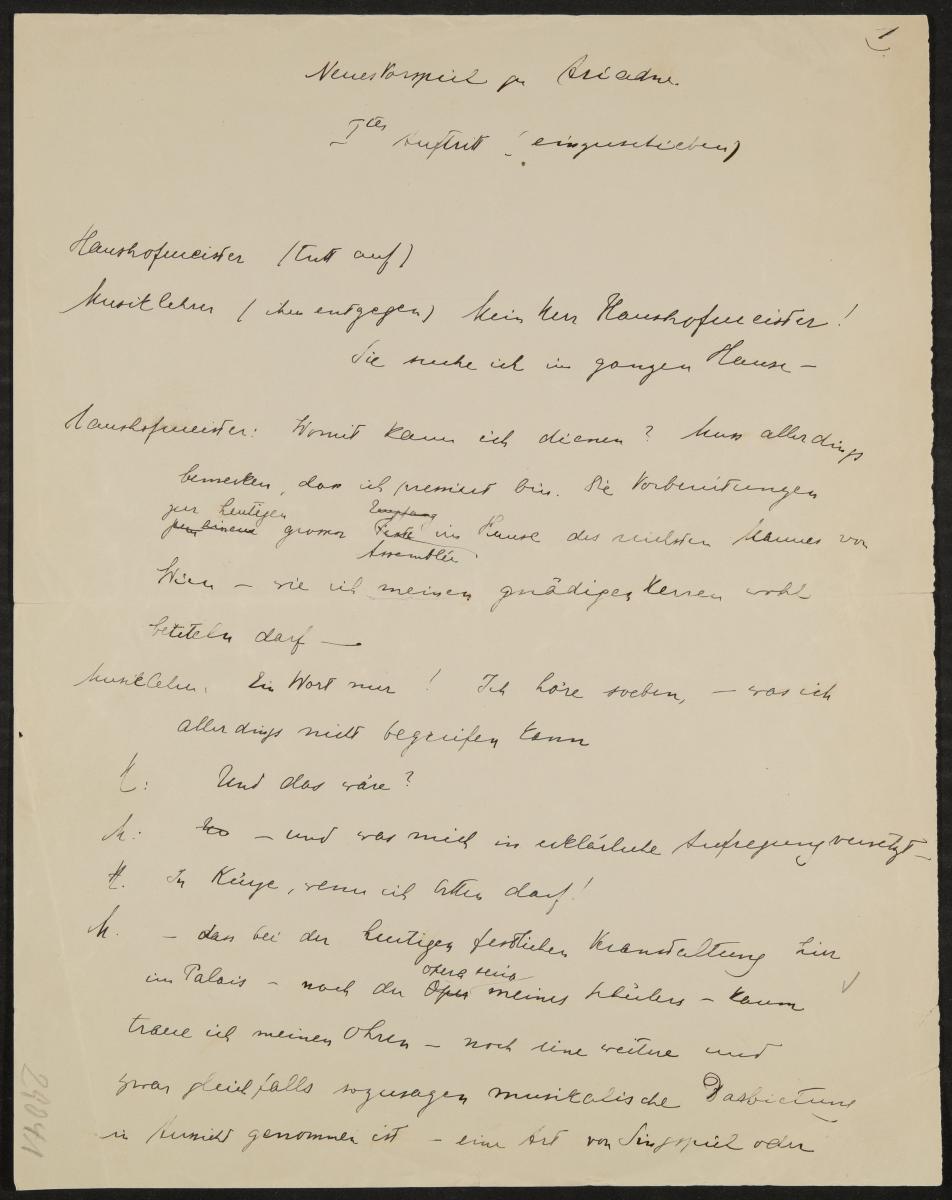 1
Neues Vorspiel zu Ariadne.
I tes Auftritt (einzuschieben)
Haushofmeister (tritt auf)
Musiklehrer (ihm entgegen) Mein Herr Haushofmeister!
Sie suche ich im ganzen Hause –
Haushofmeister: Womit kann ich dienen? Muss allerdings
bemerken, dass ich pressiert bin. Die Vorbereitungen
zur heutigen Empfang
zu einem grossen Feste im Hause des reichsten Mannes von
Assemblée
Wien – wie ich meinen gnädigen Herren wohl
betiteln darf –
Musiklehrer. Ein Wort nur! Ich höre soeben, – was ich
allerdings nicht begreifen kann
H: Und das wäre?
M: – und was mich in erklärliche Aufregung versetzt –
H. In Kürze, wenn ich bitten darf!
M. – dass bei der heutigen festlichen Veranstaltung hier
opera seria
im Palais – nach der Oper meines Schülers – kaum
traue ich meinen Ohren – noch eine weitere und
zwar gleichfalls sozusagen musikalische Darbietung
in Aussicht genommen ist – eine Art von Singspiel oder